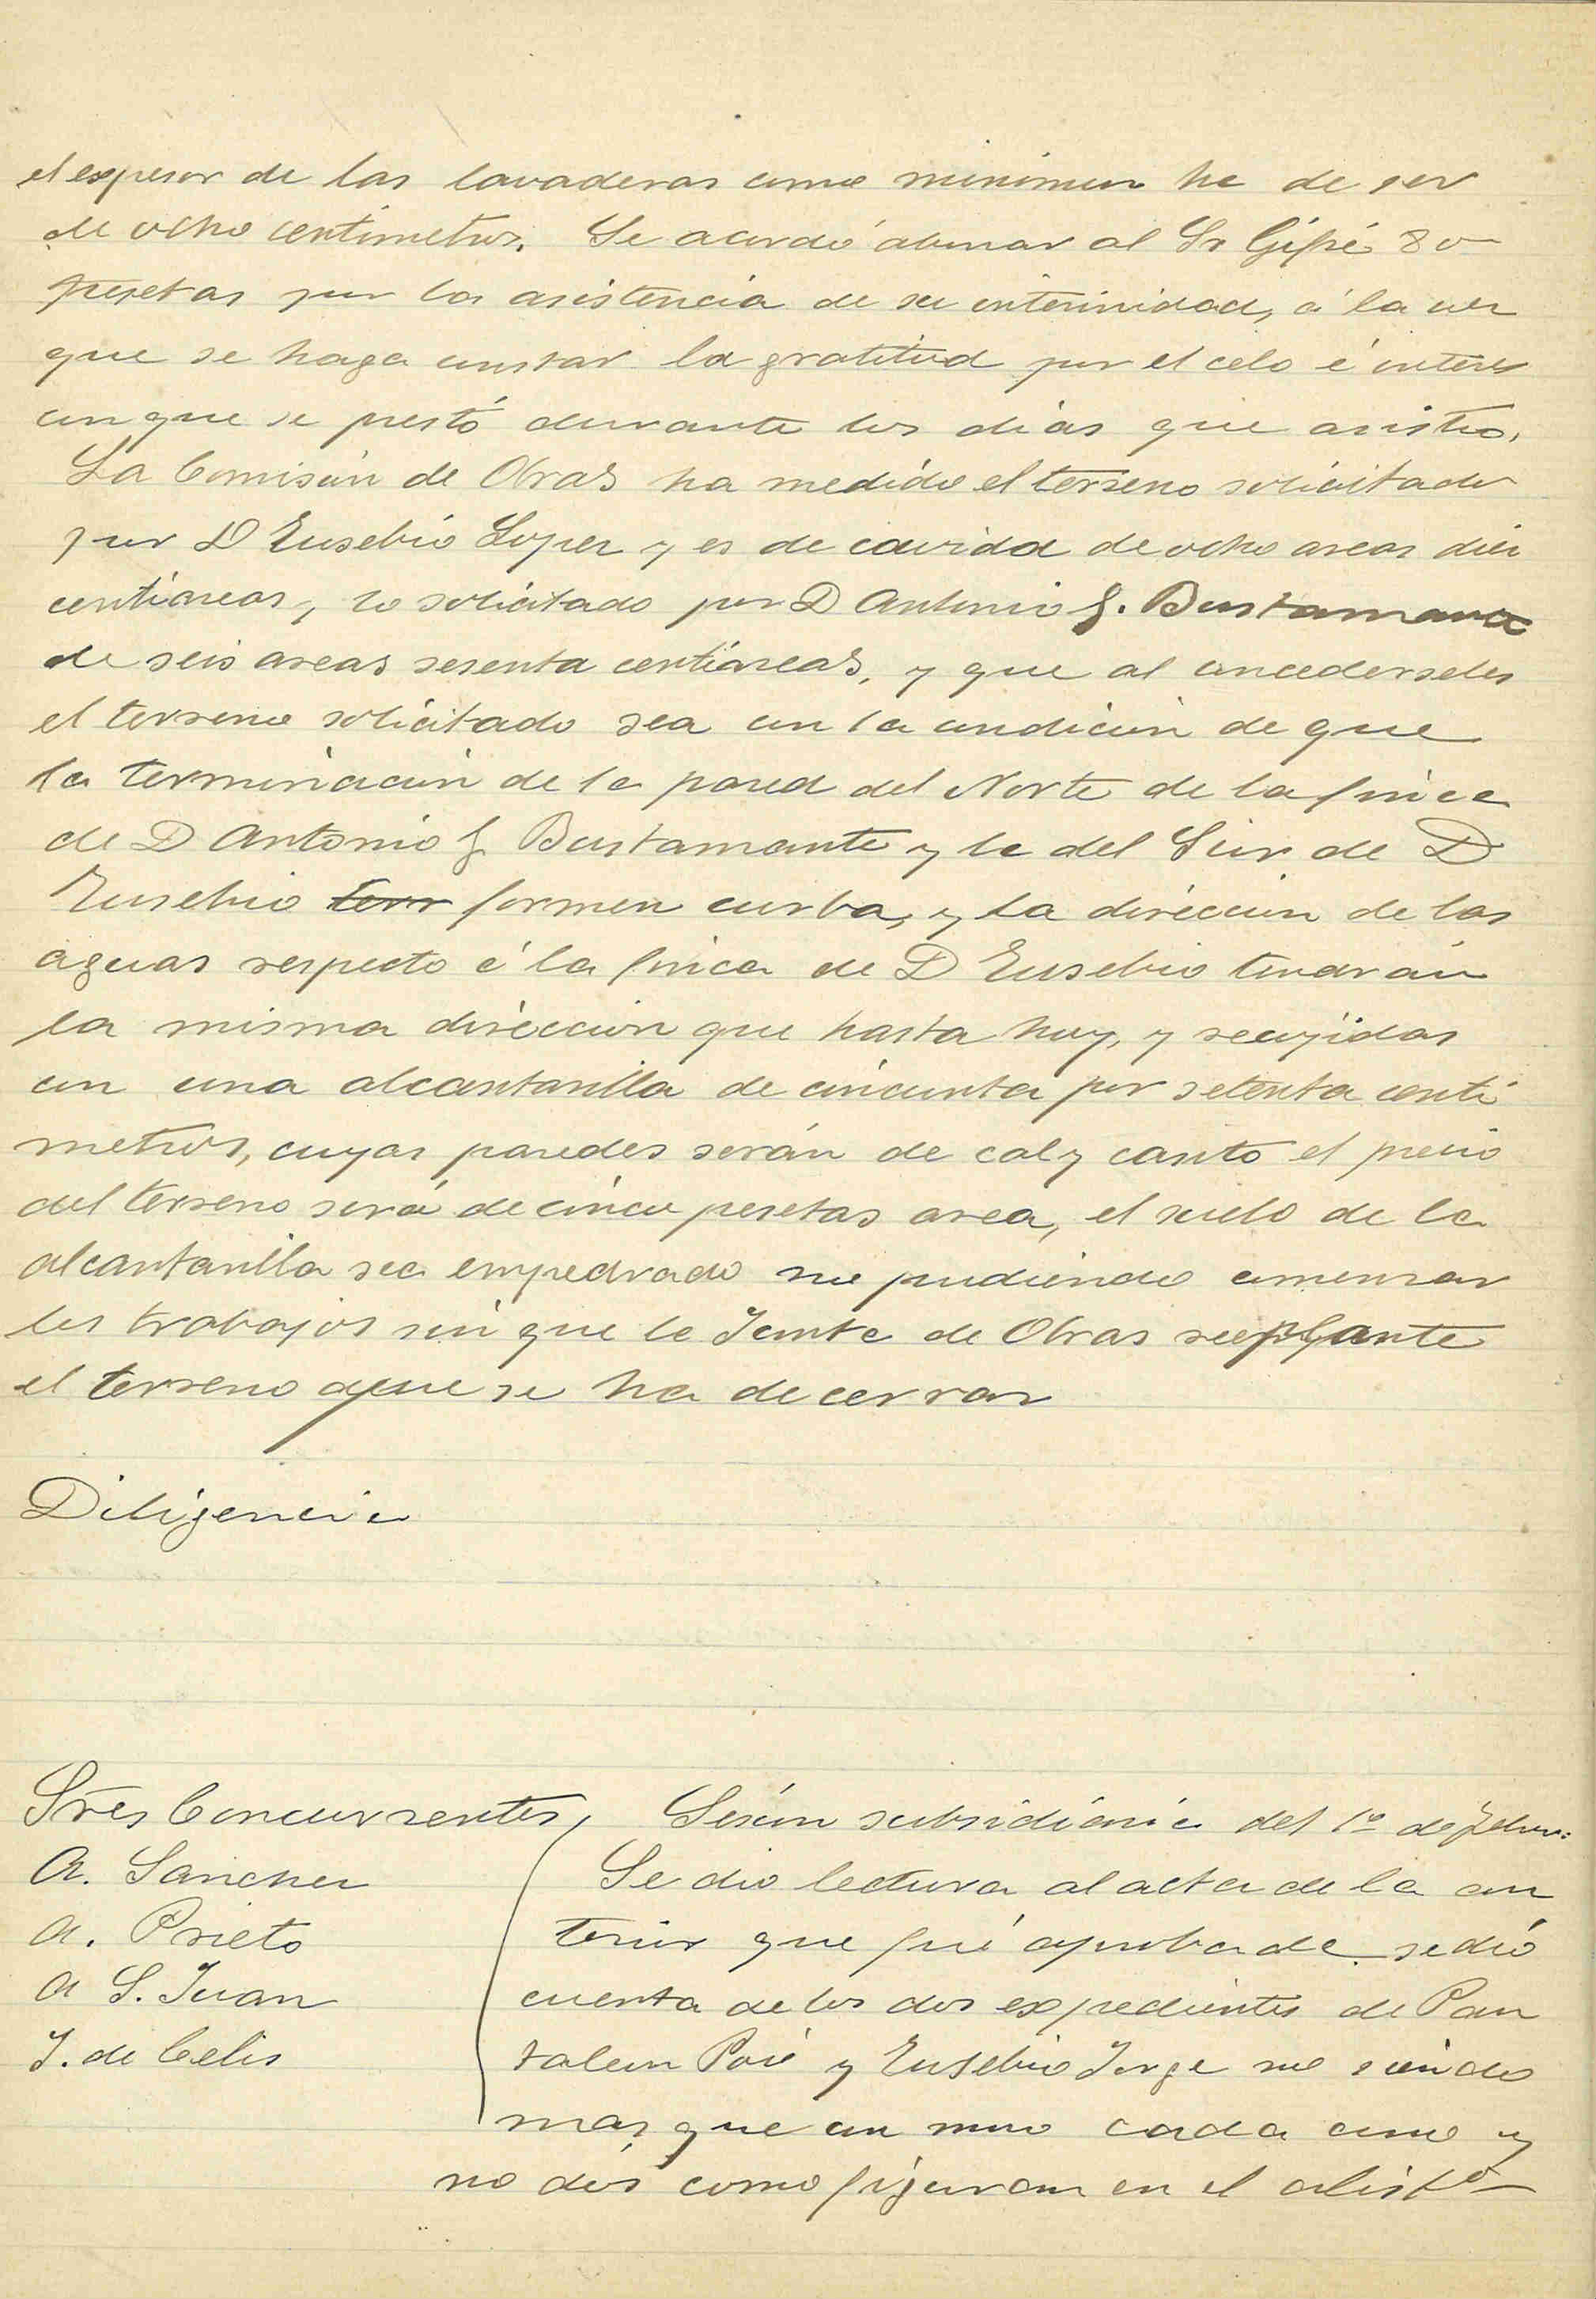 el espesor de las lavaderas como minimun ha de ser
de ocho centimetros. Se acordó abonar al Sr Gipié 80
pesetas por la asistencia de su interinidad, á la vez
que se haga constar la gratitud por el celo é interes
con que se prestó durante los dias que asistio.
La Comisión de Obras ha medido el terreno solicitado
por D Eusebio Lopez y es de cavida de ocho areas diez
centiareas, lo solicitado por D Antonio G. Bustamante
de seis areas sesenta centiareas, y que al concederseles
el terreno solicitado sea con la condición de que
la terminación de la pared del Norte de la finca
de D Antonio G Bustamante y la del Sur de D
Eusebio terr formen curba, y la dirección de las
aguas respecto á la finca de D Eusebio tendrán
la misma dirección que hasta hoy, y recojidas
con una alcantarilla de cincuenta por setenta centi
metros, cuyas paredes serán de cal y canto el precio
del terreno será de cinco pesetas area, el suelo de la
alcantarilla sea empedrado no pudiendo comenzar
los trabajos sin que la Junta de Obras replante
el terreno que se ha de cerrar
Diligencia
Sres Concurrentes
A. Sanchez
A. Prieto
A S. Juan
J. de Celis
Sesión subsidiaria del 1º de Febro
Se dio lectura al acta de la an
terior que fué aprobada se dió
cuenta de los dos expedientes de Pan
taleon y Eusebio Jorge no siendo
mas que un mozo cada uno y
no dós como figuran en el alistº